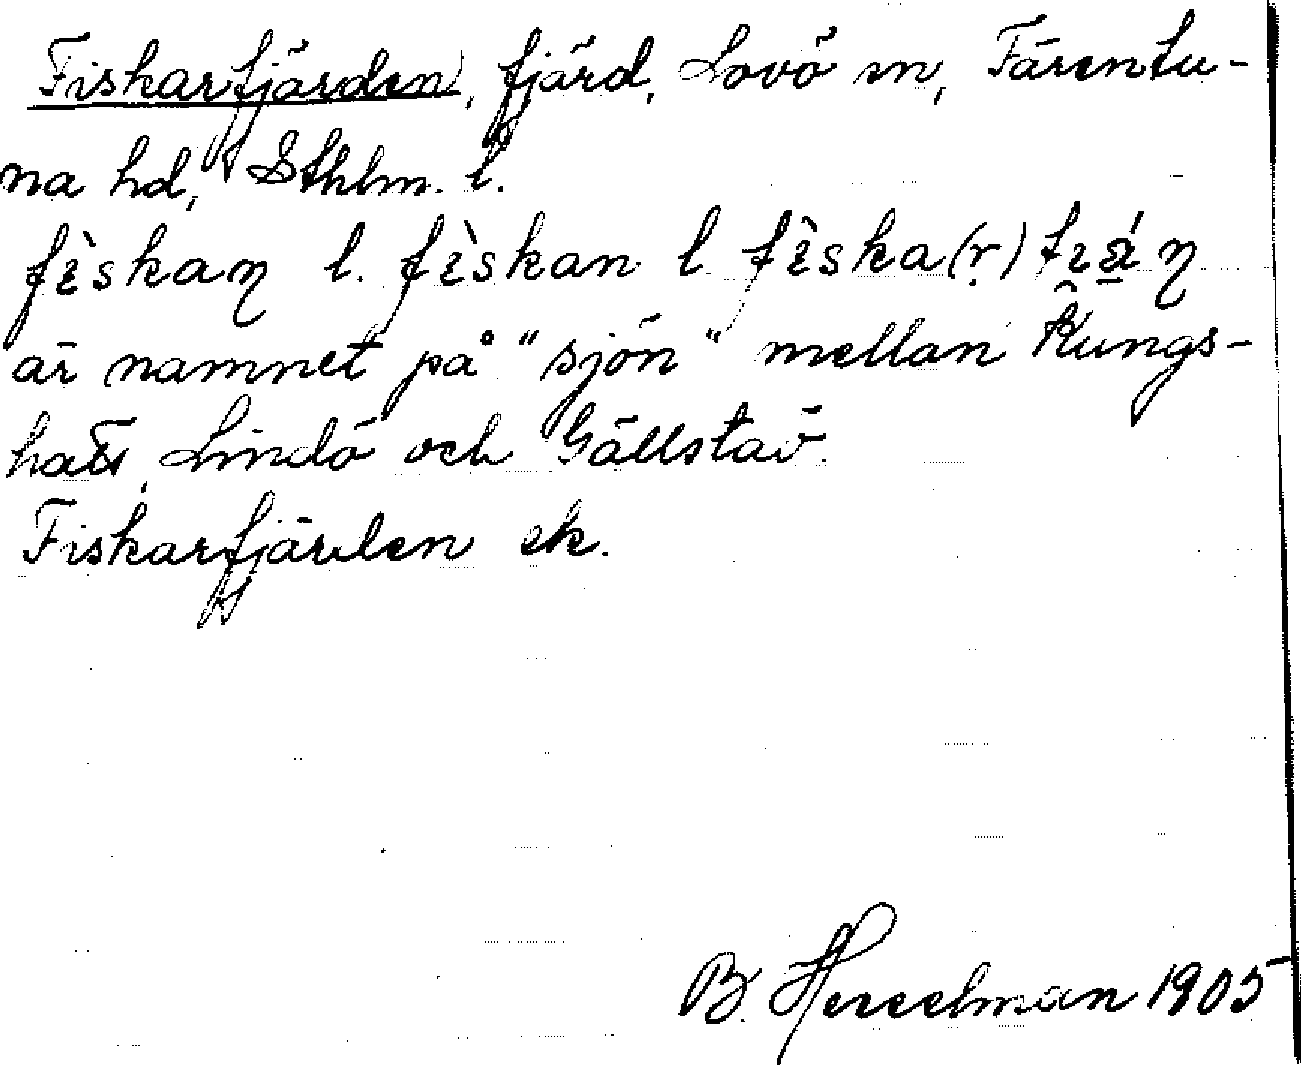 Fiskarfjärden, fjärd, Lovö sn, Färentu-
na hd, Sthlm. l.
är namnet på "sjön" mellan Kungs-
hatt, Lindö och Gällstaö.
Fiskarfjärden ek.
B. Hesselman 1905